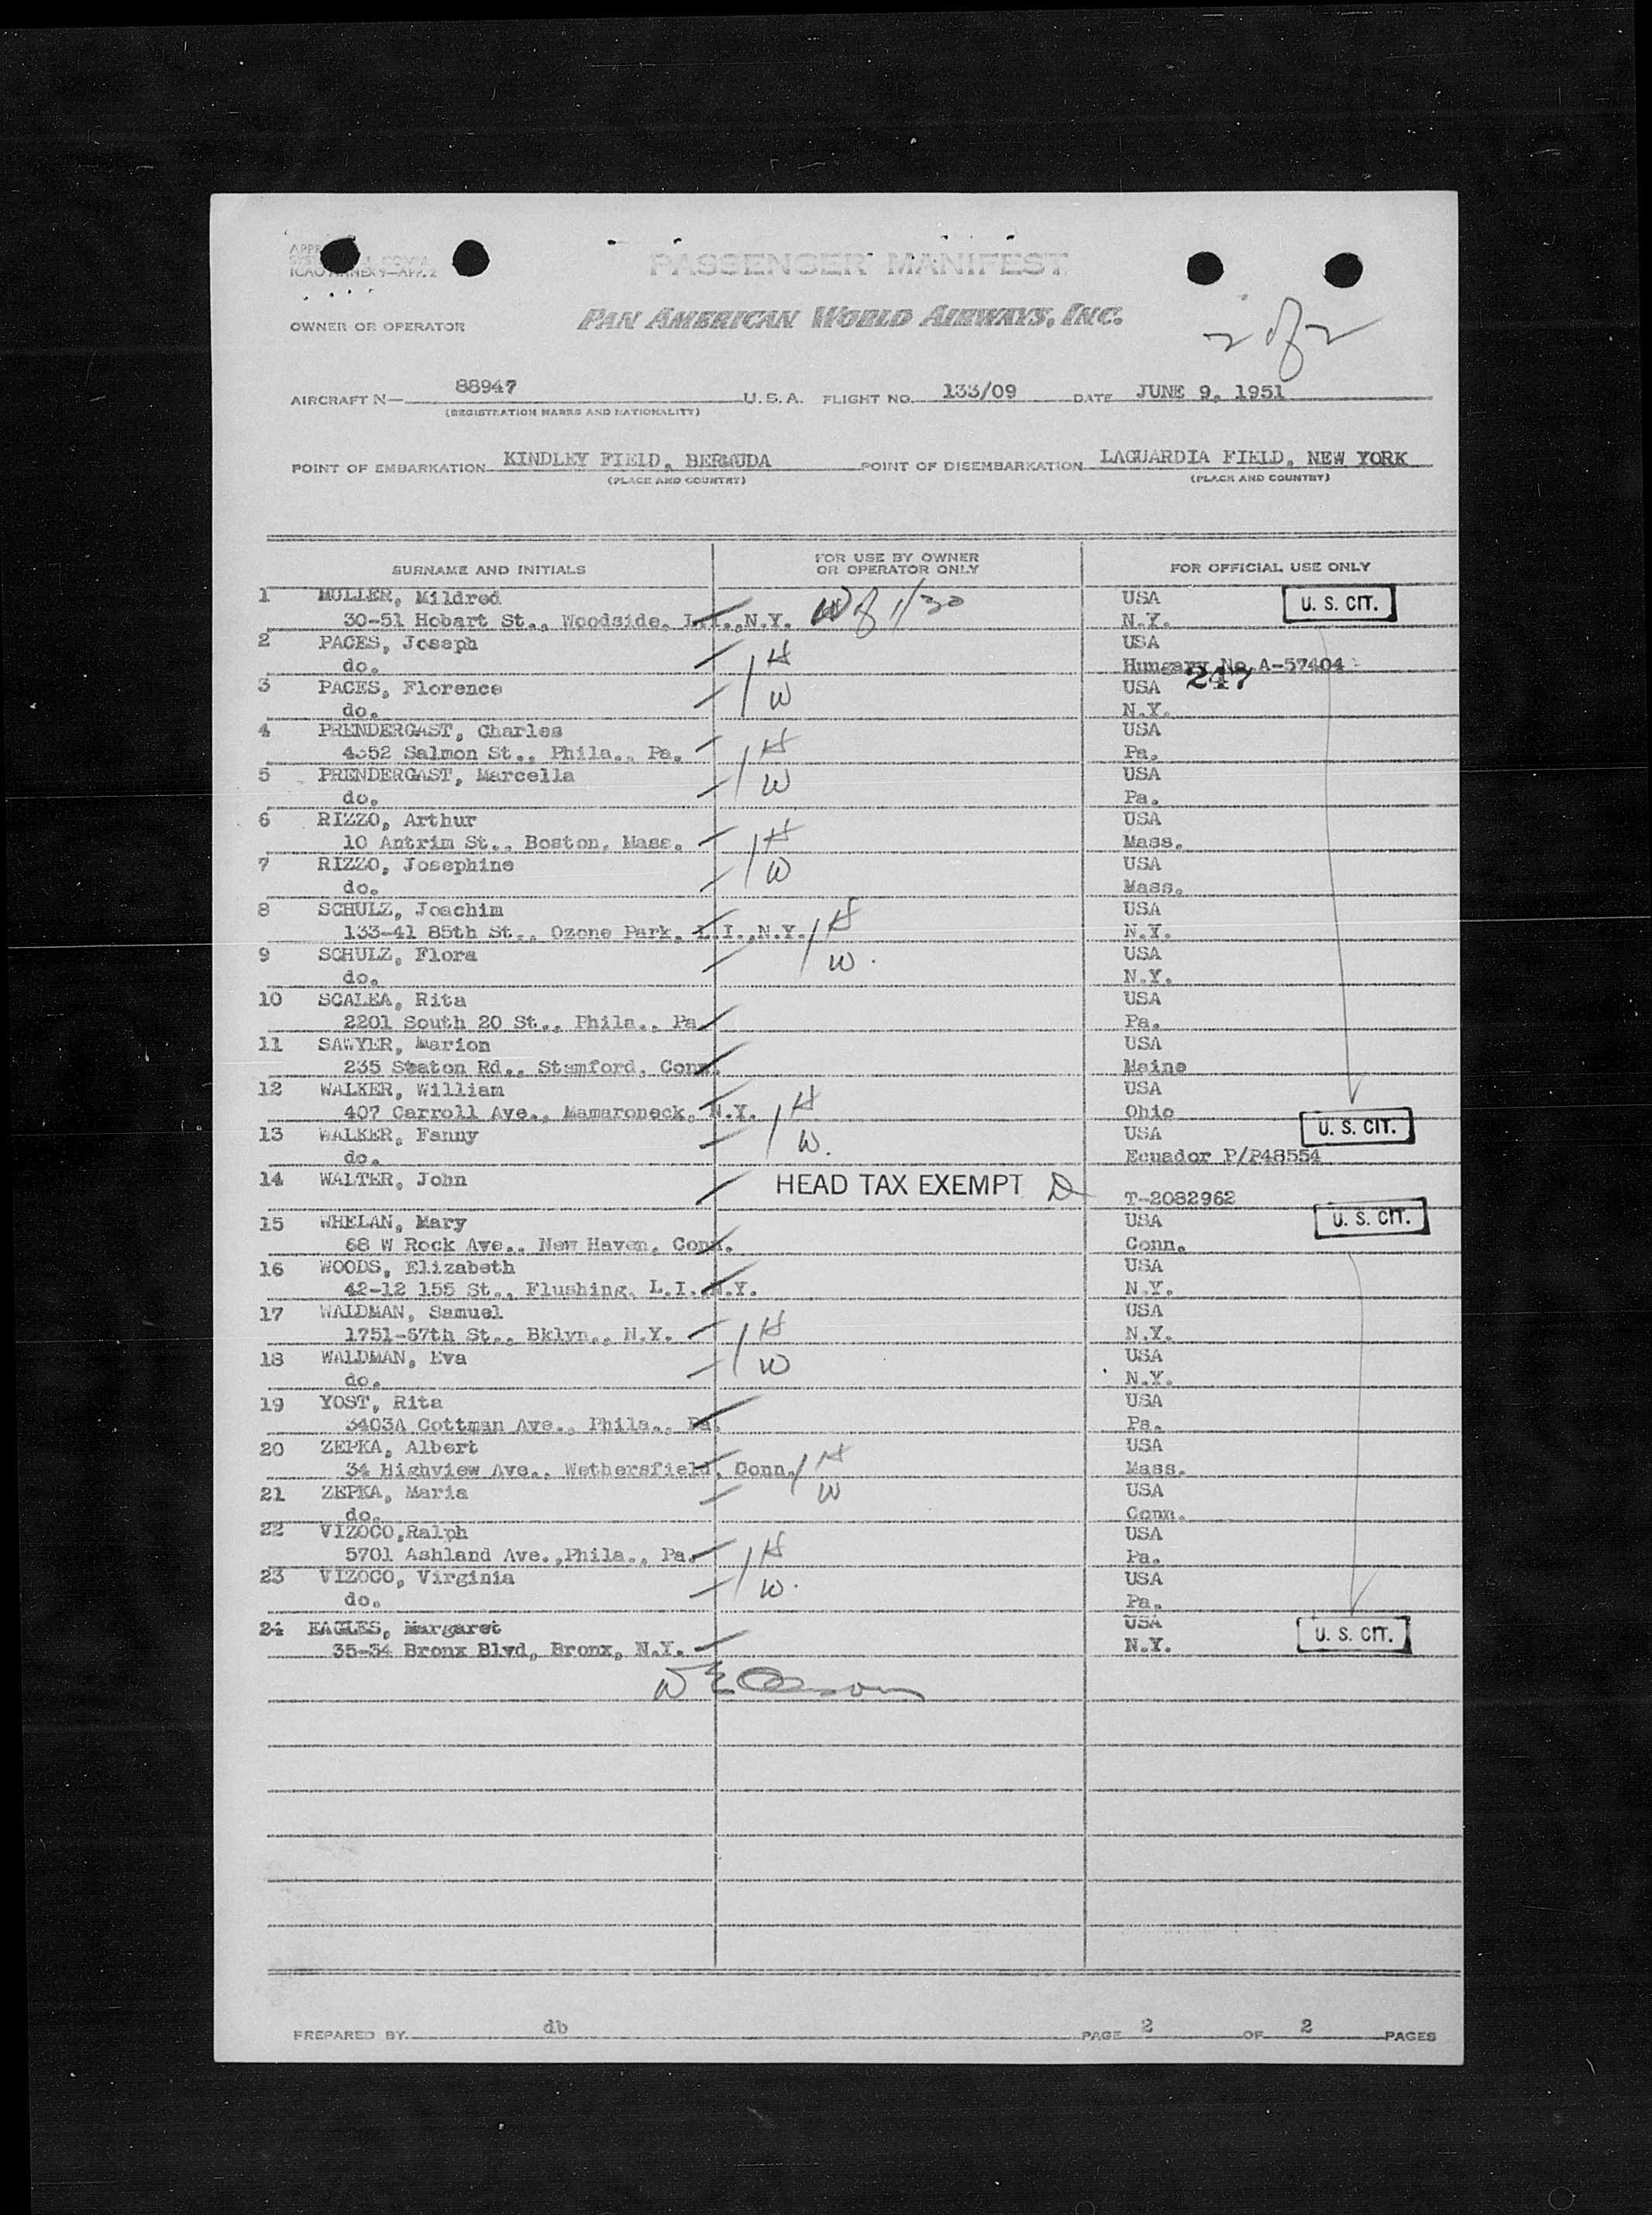 ICAO ANNEX 9—APP. 2
PASSENGER MANIFEST
OWNER OR OPERATOR
PAN AMERICAN WORLD AIRWAYS, INC.
2 of 2
AIRCRAFT N— 88947 U. S. A. FLIGHT NO. 133/09 DATE JUNE 9, 1951
(REGISTRATION MARKS AND NATIONALITY)
POINT OF EMBARKATION KINDLEY FIELD, BERMUDA POINT OF DISEMBARKATION LAGUARDIA FIELD, NEW YORK
(PLACE AND COUNTRY) (PLACE AND COUNTRY)
SURNAME AND INITIALS FOR USE BY OWNER OR OPERATOR ONLY FOR OFFICIAL USE ONLY
1 MULLER, Mildred USA U. S. CIT.
30-51 Hobart St., Woodside, L.I.,N.Y. N.Y.
2 PACES, Joseph H USA
do. Hungary No A-57404
247
3 PACES, Florence W USA
do. N.Y.
4 PRENDERGAST, Charles H USA
4352 Salmon St., Phila., Pa. Pa.
5 PRENDERGAST, Marcella W USA
do. Pa.
6 RIZZO, Arthur H USA
10 Antrim St., Boston, Mass. Mass.
7 RIZZO, Josephine W USA
do. Mass.
8 SCHULZ, Joachim H USA
133-41 85th St., Ozone Park, L.I.,N.Y. N.Y.
9 SCHULZ, Flora W. USA
do. N.Y.
10 SCALEA, Rita USA
2201 South 20 St., Phila., Pa Pa.
11 SAWYER, Marion USA
235 Seaton Rd., Stamford, Conn. Maine
12 WALKER, William H USA
407 Carroll Ave., Mamaroneck, N.Y. Ohio
13 WALKER, Fanny W. USA U. S. CIT.
do. Ecuador P/P48554
14 WALTER, John HEAD TAX EXEMPT
T-2082962
15 WHELAN, Mary USA U. S. CIT.
68 W Rock Ave., New Haven, Conn. Conn.
16 WOODS, Elizabeth USA
42-12 155 St., Flushing, L.I. N.Y. N.Y.
17 WALDMAN, Samuel H USA
1751-57th St., Bklyn., N.Y. N.Y.
18 WALDMAN, Eva W USA
do. N.Y.
19 YOST, Rita USA
3403A Cottman Ave., Phila., Pa. Pa.
20 ZEPKA, Albert H USA
34 Highview Ave., Wethersfield, Conn. Mass.
21 ZEPKA, Maria W USA
do. Conn.
22 VIZOCO,Ralph H USA
5701 Ashland Ave.,Phila., Pa. Pa.
23 VIZOCO, Virginia W. USA
do. Pa.
24 EAGLES, Margaret USA U. S. CIT.
35-34 Bronx Blvd, Bronx, N.Y. N.Y.
PREPARED BY db PAGE 2 OF 2 PAGES